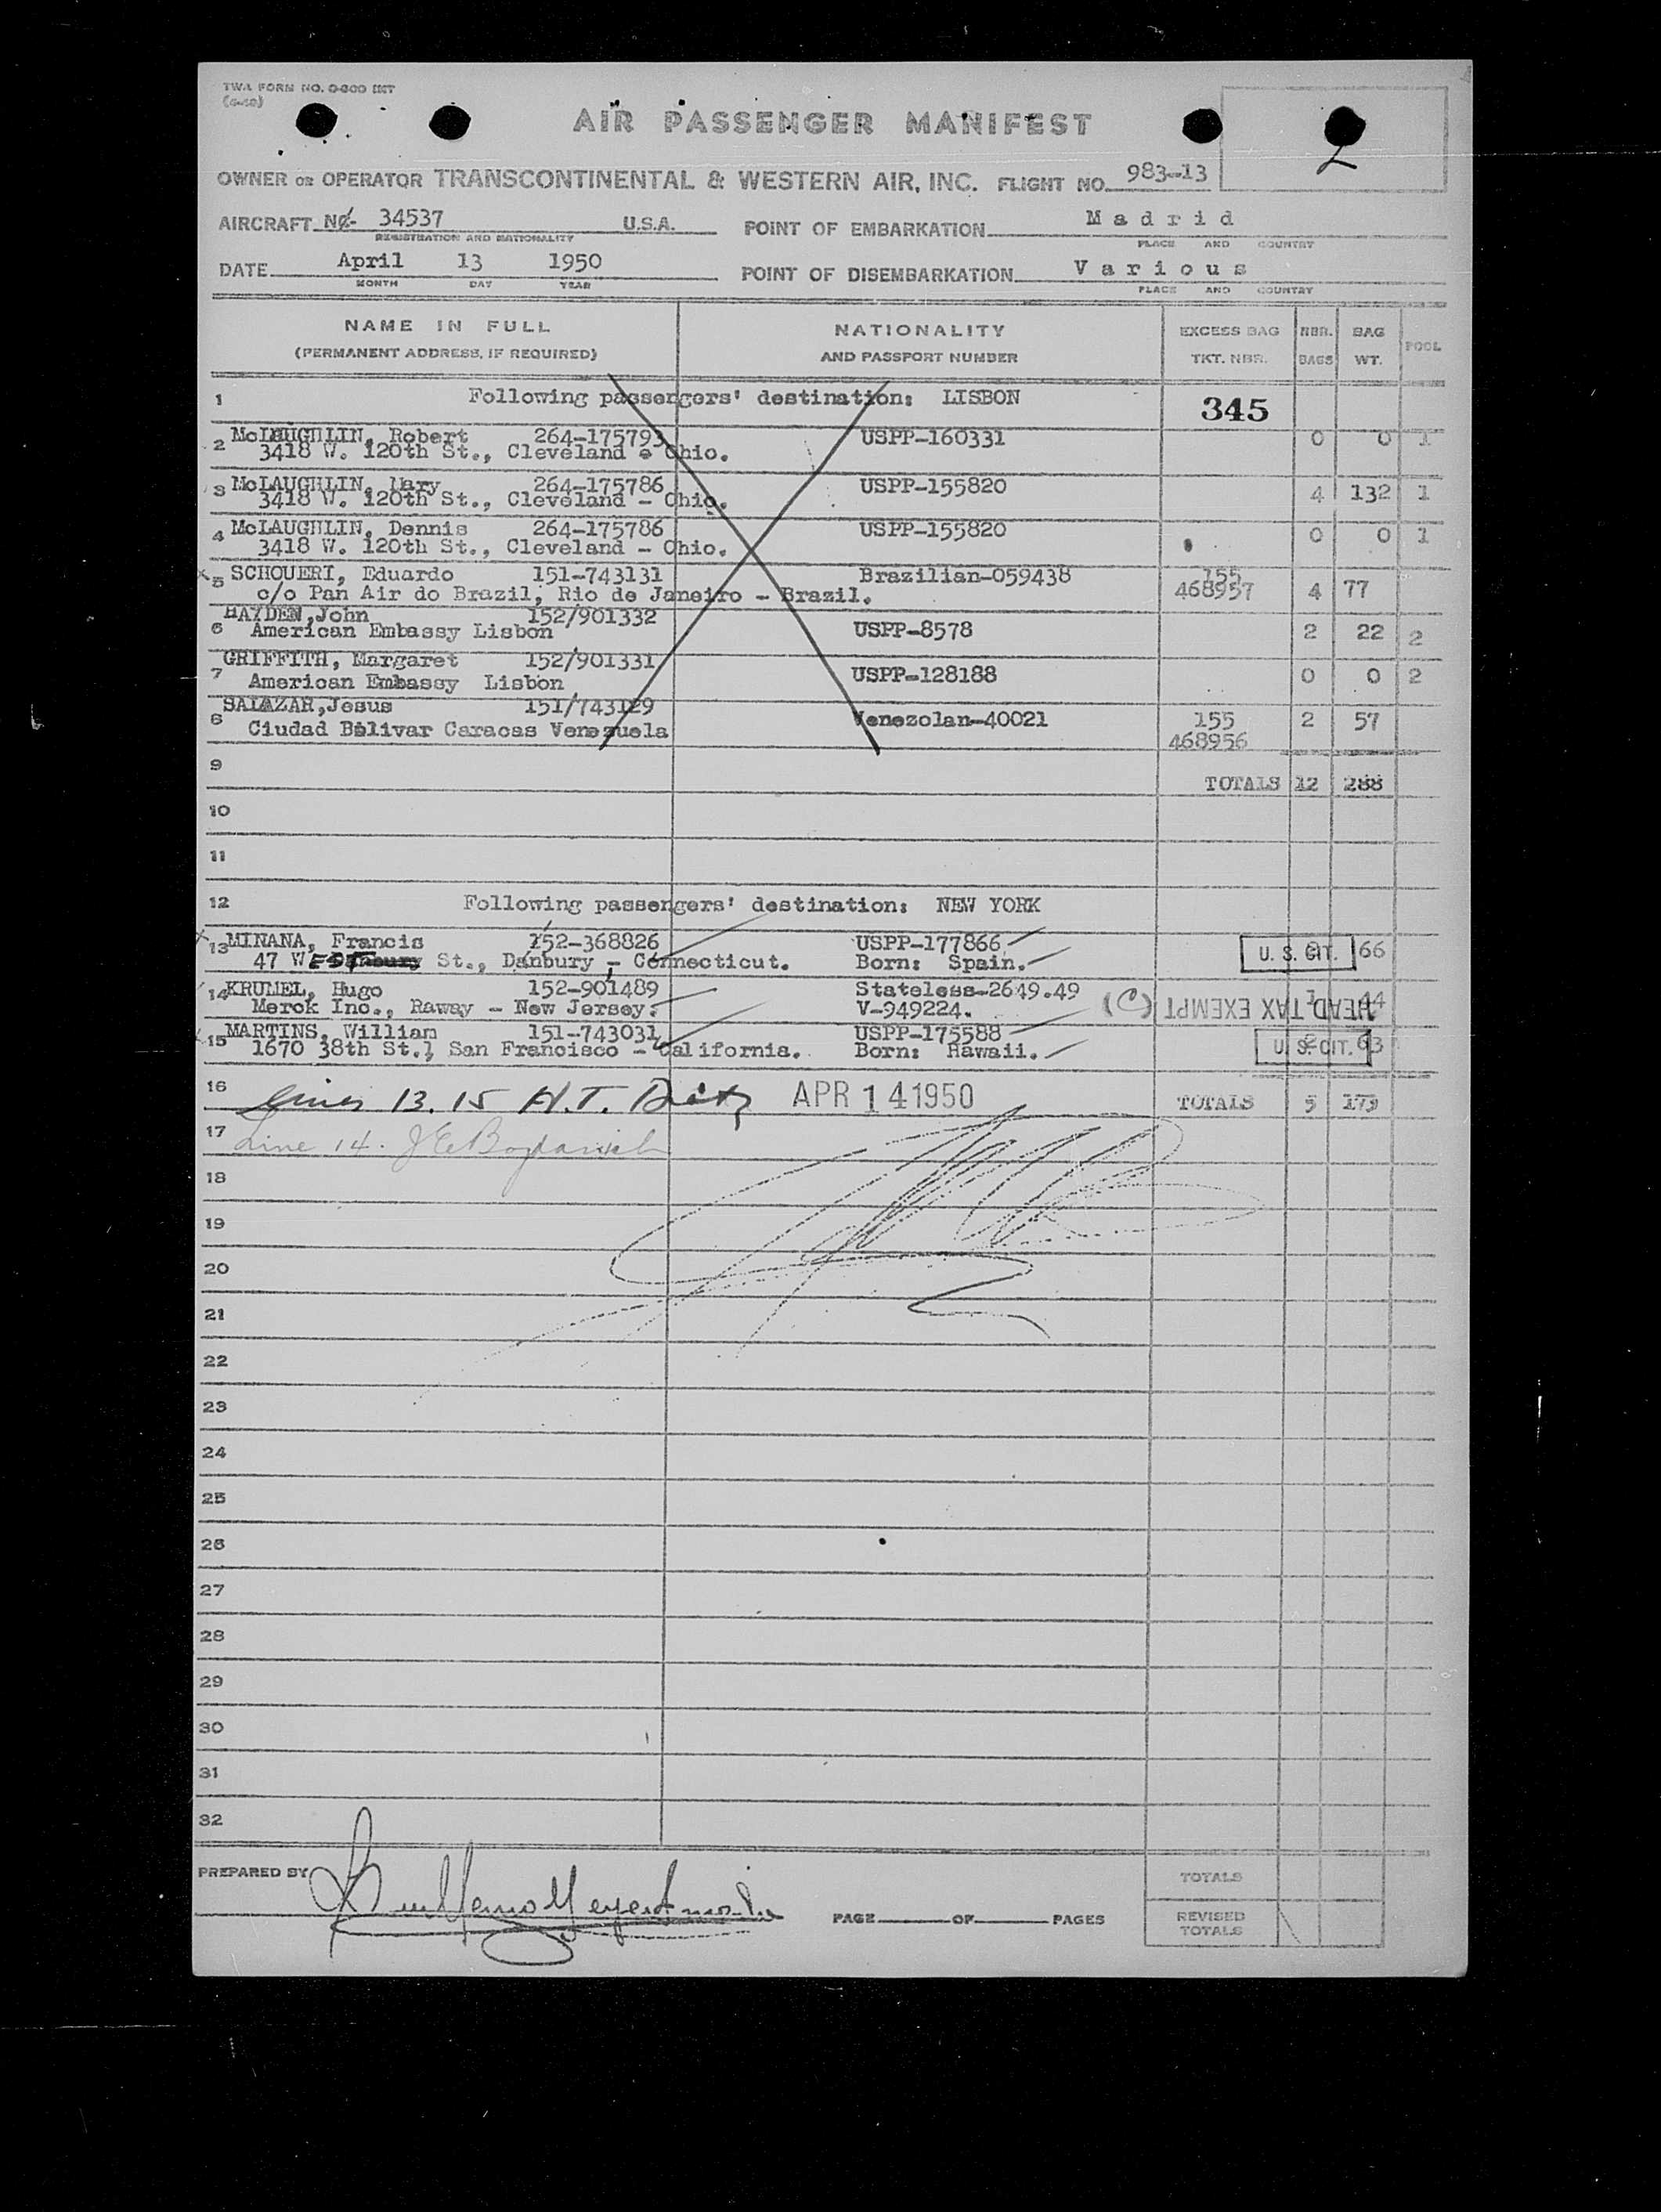 TWA FORM NO. 0-800 INT
(4-49)
AIR PASSENGER MANIFEST
2
OWNER OR OPERATOR TRANSCONTINENTAL & WESTERN AIR, INC. FLIGHT NO. 983-13
AIRCRAFT No. 34537 U.S.A. POINT OF EMBARKATION Madrid
REGISTRATION AND NATIONALITY PLACE AND COUNTRY
DATE April 13 1950 POINT OF DISEMBARKATION Various
MONTH DAY YEAR PLACE AND COUNTRY
NAME IN FULL NATIONALITY EXCESS BAG NBR. BAG POOL
(PERMANENT ADDRESS, IF REQUIRED) AND PASSPORT NUMBER TKT. NBR. BAGS WT.
1 Following passengers' destination: LISBON 345
2 McLAUGHLIN, Robert 264-175793 USPP-160331 0 0 1
3418 W. 120th St., Cleveland - Ohio.
3 McLAUGHLIN, Mary 264-175786 USPP-155820 4 132 1
3418 W. 120th St., Cleveland - Ohio.
4 McLAUGHLIN, Dennis 264-175786 USPP-155820 0 0 1
3418 W. 120th St., Cleveland - Ohio.
5 SCHOUERI, Eduardo 151-743131 Brazilian-059438 155
c/o Pan Air do Brazil, Rio de Janeiro - Brazil. 468957 4 77
6 HAYDEN,John 152/901332
American Embassy Lisbon USPP-8578 2 22 2
7 GRIFFITH, Margaret 152/901331
American Embassy Lisbon USPP-128188 0 0 2
8 SALAZAR,Jesus 151/743129 Venezolan-40021 155 2 57
Ciudad Bolivar Caracas Venezuela 468956
9 TOTALS 12 288
10
11
12 Following passengers' destination: NEW YORK
13 MINANA, Francis 152-368826 USPP-177866 U. S. CIT. 66
47 WEST St., Danbury - Connecticut. Born: Spain.
14 KRUMEL, Hugo 152-901489 Stateless-2649.49 (C) HEAD TAX EXEMPT 1 44
Merck Inc., Raway - New Jersey. V-949224.
15 MARTINS, William 151-743031 USPP-175588 U. S. CIT. 2 63
1670 38th St., San Francisco - California. Born: Hawaii.
16 Lines 13. 15 H.T. APR 14 1950 TOTALS 5 173
17 Line 14.
18
19
20
21
22
23
24
25
26
27
28
29
30
31
32
PREPARED BY TOTALS
PAGE OF PAGES REVISED
TOTALS